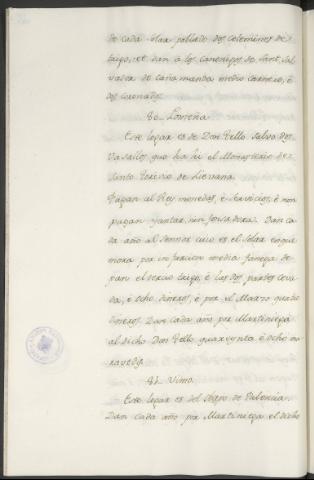 de cada solar poblado dos celemines de
trigo, et dan à los canonigos de Sant Sal-
vador de caña manda medio carnero, è
dos coronados.
80. Loureña
Este logar es de Don Tello, salvo dos
Vasallos que ha hi el Monasterio de
Santo Toribio de Lievana.
Pagan al Rey monedas, è servicios, è non
pagan yantar, nin fonsadera. Dan ca-
da año al Sennor cuio es el solar en que
mora por infurcion media fanega de
pan el tercio trigo, è las dos partes ceva-
da, è ocho dineros, è por el Marzo quatro
dineros. Dan cada año por Martiniega
al dicho Don Tello quarenta è ocho ma-
ravedis.
81. Vimo.
Este logar es del obispo de Palencia.
Dan cada año por Martiniega el dicho